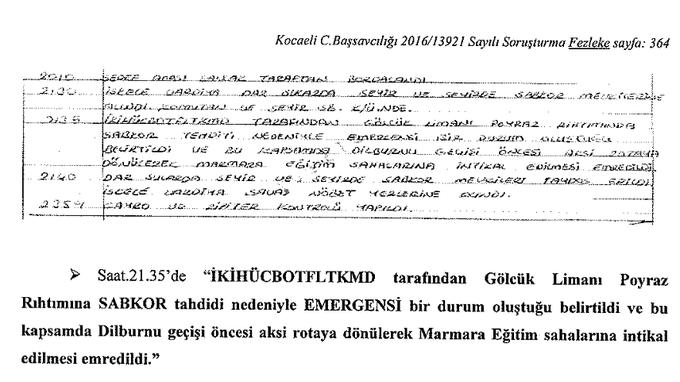 Kocaeli C.Başsavcılığı 2016/13921 Sayılı Soruşturma Fezleke sayfa: 364
2010 SEDEF ADASI TARAFTAN BORDALANDI.
2130 İSKELE VARDİYA DAR SULARDA SEYİR VE SEYİRDE SABKOR MEVKİLERİNE
ALINDI. KOMUTAN VE SEYİR SB. K/ÜNDE.
2135 İKİHÜCBOTFLTKMD TARAFINDAN GÖLCÜK LİMANI POYRAZ RIHTIMINDA
SABKOR TEHDİTİ NEDENİYLE EMERGENSİ BİR DURUM OLUŞTUĞU
BELİRTİLDİ VE BU KAPSAMDA DİLBURNU GEÇİŞİ ÖNCESİ AKSİ ROTAYA
DÖNÜLEREK MARMARA EĞİTİM SAHALARINA İNTİKAL EDİLMESİ EMREDİLDİ.
2140 DAR SULARDA SEYİR VE SEYİRDE SABKOR MEVKİLERİ PAYDOS EDİLDİ
İSKELE VARDİYA SAVAŞ NÖBET YERLERİNE
2359 CAYRO VE RİPİTER KONTROLÜ YAPILDI.
➢ Saat.21.35’de “İKİHÜCBOTFLTKMD tarafından Gölcük Limanı Poyraz
Rıhtımına SABKOR tahdidi nedeniyle EMERGENSİ bir durum oluştuğu belirtildi ve bu
kapsamda Dilburnu geçişi öncesi aksi rotaya dönülerek Marmara Eğitim sahalarına intikal
edilmesi emredildi.”